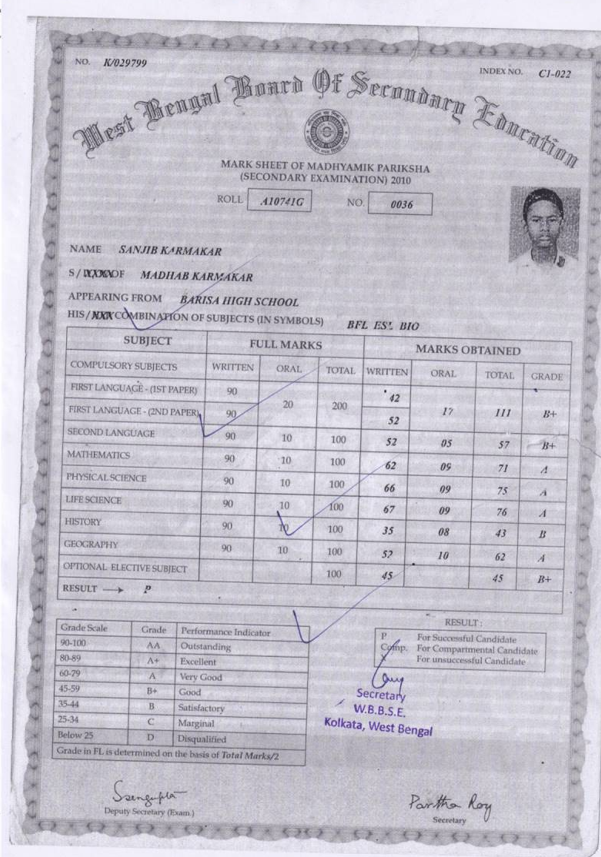 NO. K/029799 INDEX NO. C1-022
West Bengal Board Of Secondary Education
MARK SHEET OF MADHYAMIK PARIKSHA
(SECONDARY EXAMINATION) 2010
ROLL A10741G NO. 0036
NAME SANJIB KARMAKAR
S / OF MADHAB KARMAKAR
APPEARING FROM BARISA HIGH SCHOOL
HIS / COMBINATION OF SUBJECTS (IN SYMBOLS) BFL ESL BIO
SUBJECT FULL MARKS MARKS OBTAINED
COMPULSORY SUBJECTS WRITTEN ORAL TOTAL WRITTEN ORAL TOTAL GRADE
FIRST LANGUAGE - (1ST PAPER) 90 20 200 42 17 111 B+
FIRST LANGUAGE - (2ND PAPER) 90 52
SECOND LANGUAGE 90 10 100 52 05 57 B+
MATHEMATICS 90 10 100 62 09 71 A
PHYSICAL SCIENCE 90 10 100 66 09 75 A
LIFE SCIENCE 90 10 100 67 09 76 A
HISTORY 90 10 100 35 08 43 B
GEOGRAPHY 90 10 100 52 10 62 A
OPTIONAL ELECTIVE SUBJECT 100 45 45 B+
RESULT → P
Grade Scale Grade Performance Indicator
90-100 AA Outstanding
80-89 A+ Excellent
60-79 A Very Good
45-59 B+ Good
35-44 B Satisfactory
25-34 C Marginal
Below 25 D Disqualified
Grade in FL is determined on the basis of Total Marks/2
RESULT :
P For Successful Candidate
Comp. For Compartmental Candidate
X For unsuccessful Candidate
Secretary
W.B.B.S.E.
Kolkata, West Bengal
Deputy Secretary (Exam.)
Partha Roy
Secretary